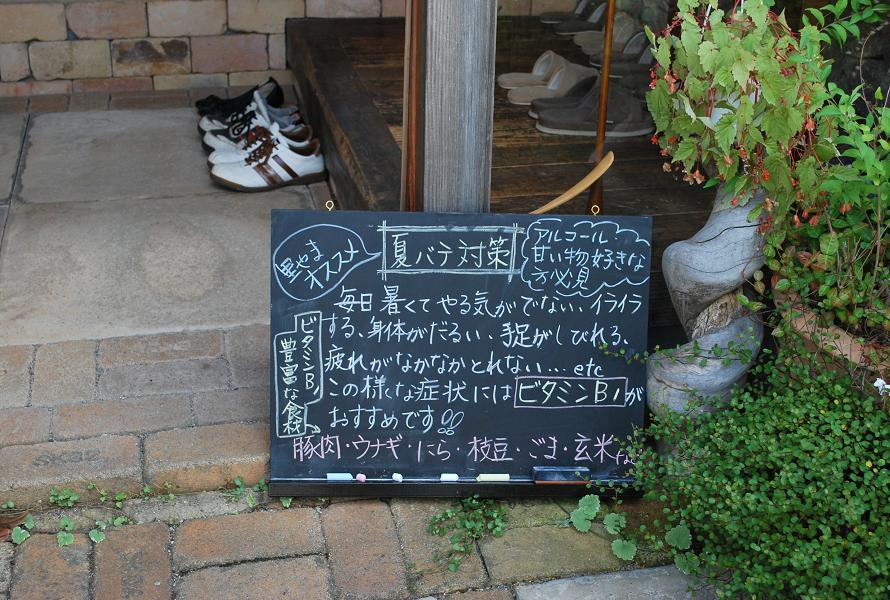 里やま
オススメ
夏バテ対策
アルコール・
甘い物好きな
方必見
毎日暑くてやる気がでない、イライラ
する、身体がだるい、手足がしびれる、
疲れがなかなかとれない…etc
この様な症状には ビタミンB1 が
おすすめです
ビタミンB1
豊富な食材
豚肉・ウナギ・にら・枝豆・ごま・玄米など